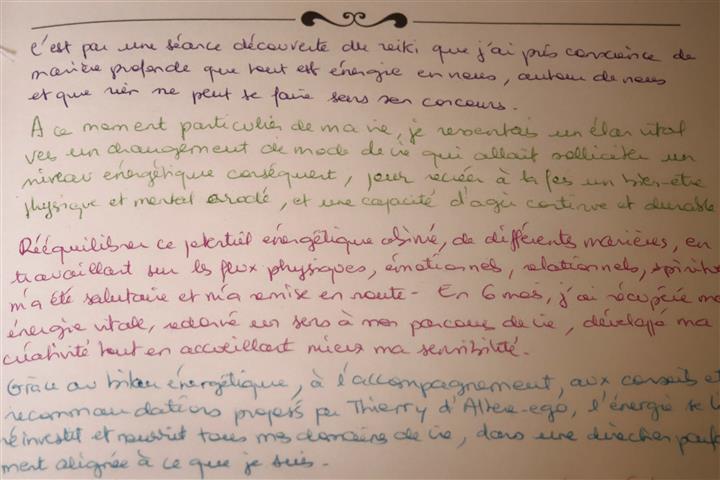 C'est par une séance découverte du reiki que j'ai pris conscience de
manière profonde que tout est énergie en nous, autour de nous
et que rien ne peut se faire sans son concours.
A ce moment particulier de ma vie, je ressentais un élan vital
vers un changement de mode de vie qui allait solliciter un
niveau énergétique conséquent, pour recréer à la fois un bien-être
physique et mental érodé, et une capacité d'agir continue et durable
Rééquilibrer ce potentiel énergétique abîmé, de différentes manières, en
travaillant sur les flux physiques, émotionnels, relationnels, spiritue
m'a été salutaire et m'a remise en route - En 6 mois, j'ai récupéré m
énergie vitale, redonné un sens à mon parcours de vie, développé ma
créativité tout en accueillant mieux ma sensibilité.
Grâce au bilan énergétique, à l'accompagnement, aux conseils et
recommandations proposés par Thierry d'Alter-ego, l'énergie se
réinvestit et nourrit tous mes domaines de vie, dans une direction
ment alignée à ce que je suis.